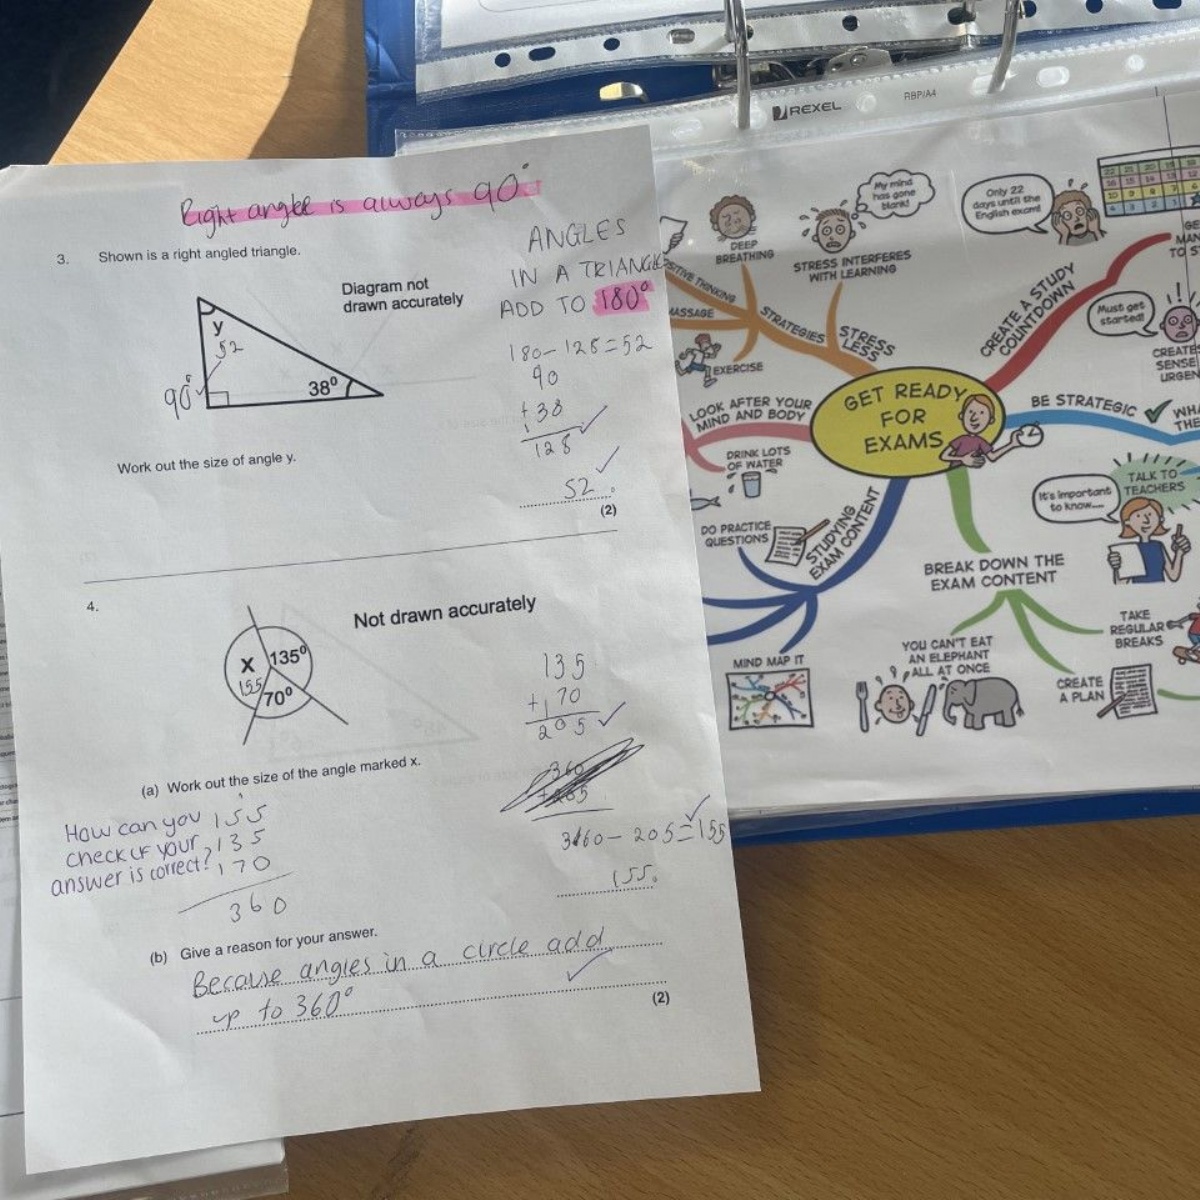 Right angle is always 90°
3. Shown is a right angled triangle.
Diagram not
drawn accurately
y
52
90°
38°
ANGLES
IN A TRIANGLE
ADD TO 180°
180-128=52
90
+38
128
Work out the size of angle y.
52°
(2)
4.
Not drawn accurately
x
135°
155
70°
135
+ 70
205
(a) Work out the size of the angle marked x.
360
360 - 205 = 155
155°
How can you
check if your
answer is correct?
155
135
70
360
(b) Give a reason for your answer.
Because angles in a circle add
up to 360°
(2)
REXEL
RBP/A4
My mind
has gone
blank!
Only 22
days until the
English exam!
DEEP
BREATHING
STRESS INTERFERES
WITH LEARNING
THINKING
STRATEGIES
STRESS
LESS
EXERCISE
CREATE A STUDY
COUNTDOWN
Must get
started!
LOOK AFTER YOUR
MIND AND BODY
GET READY
FOR
EXAMS
BE STRATEGIC
DRINK LOTS
OF WATER
TALK TO
TEACHERS
It's important
to know....
DO PRACTICE
QUESTIONS
STUDYING
EXAM CONTENT
BREAK DOWN THE
EXAM CONTENT
MIND MAP IT
YOU CAN'T EAT
AN ELEPHANT
ALL AT ONCE
TAKE
REGULAR
BREAKS
CREATE
A PLAN